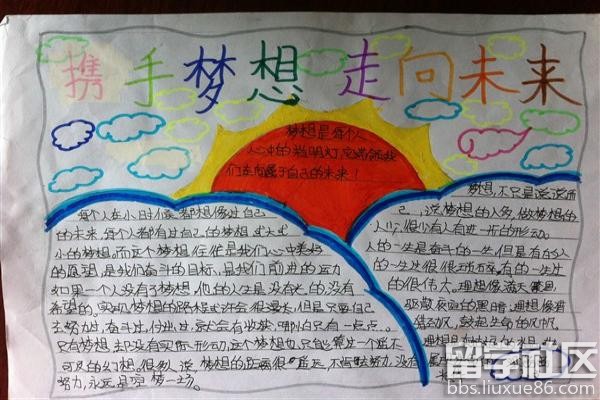 携手梦想 走向未来
梦想是每个人
心中的指明灯,它带领我
们走向属于自己的未来!
每个人在小时候,都想像过自己
的未来,每个人都有过自己的梦想,或大或
小的梦想。而这个梦想,往往是我们心中美好
的愿望,是我们奋斗的目标,是我们前进的动力
如果一个人没有了梦想,他的人生是没有光的,没有
希望的。实现梦想的路程或许会很漫长,但是只要自己
去努力过,奋斗过,付出过,最后会有收获,哪怕只有一点点。
只有梦想,却没有实际行动,这个梦想也只能算是一个遥不
可及的幻想。很多人说,梦想的距离很遥远,不肯去努力,没有
努力,永远是空梦一场。
梦想,不只是说说而
己,说梦想的人多,做梦想的
人少,很少有人有进一步的行动。
人的一生是奋斗的一生,但是有的人
的一生过很很
有的一生过
的很伟大。理想像满天
驱散夜空的黑暗,理想像
鼓起生命的风帆,
理想是
留学社区
bbs.liuxue86.com